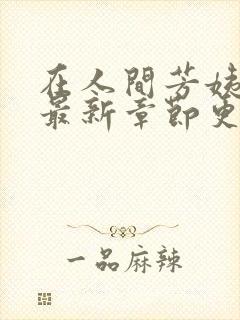 在人間芳姨
最新章節更
一品麻辣